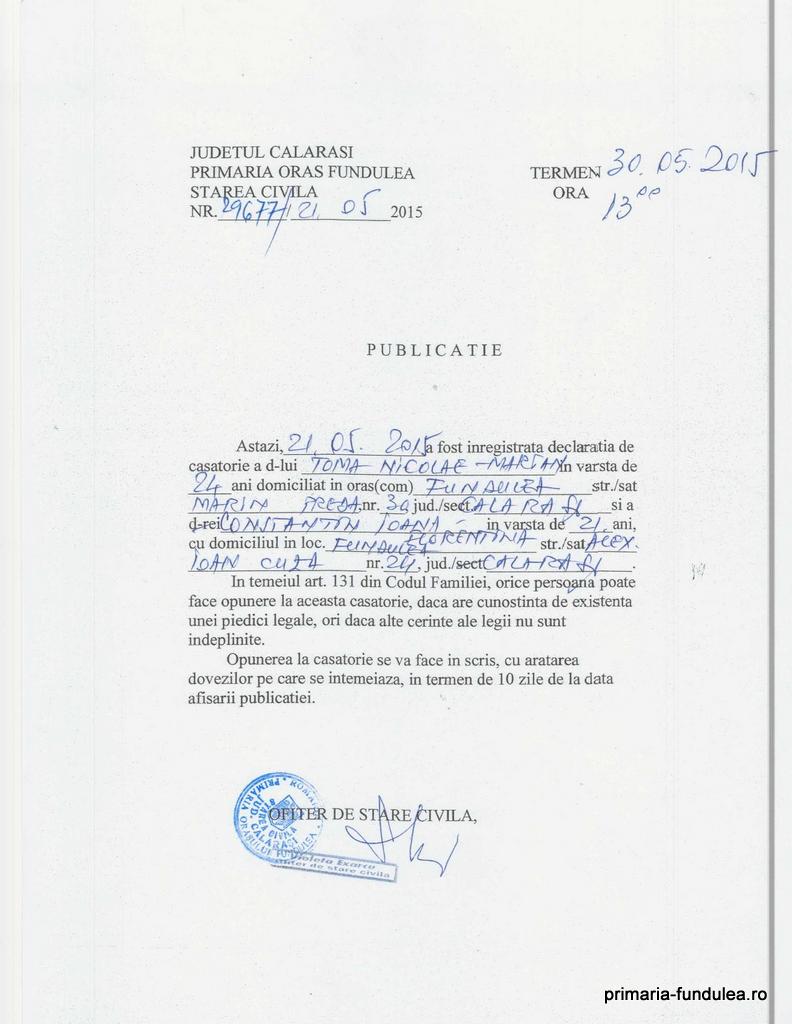 JUDETUL CALARASI
PRIMARIA ORAS FUNDULEA
STAREA CIVILA
NR. 29677/21 05 2015
TERMEN 30.05.2015
ORA 13⁰⁰
PUBLICATIE
Astazi, 21.05.2015 a fost inregistrata declaratia de
casatorie a d-lui TOMA NICOLAE-MARIAN in varsta de
24 ani domiciliat in oras(com) FUNDULEA str./sat
MARIN PREDA, nr. 3a jud./sect. CALARASI si a
d-rei CONSTANTIN IOANA - in varsta de 21 ani,
FLORENTINA
cu domiciliul in loc. FUNDULEA str./sat ALEX.
IOAN CUZA nr. 24, jud./sect CALARASI.
In temeiul art. 131 din Codul Familiei, orice persoana poate
face opunere la aceasta casatorie, daca are cunostinta de existenta
unei piedici legale, ori daca alte cerinte ale legii nu sunt
indeplinite.
Opunerea la casatorie se va face in scris, cu aratarea
dovezilor pe care se intemeiaza, in termen de 10 zile de la data
afisarii publicatiei.
OFITER DE STARE CIVILA,
PRIMARIA ORASULUI FUNDULEA
JUD. CALARASI
STAREA CIVILA
Violeta Exarcu
ofiter de stare civila
primaria-fundulea.ro